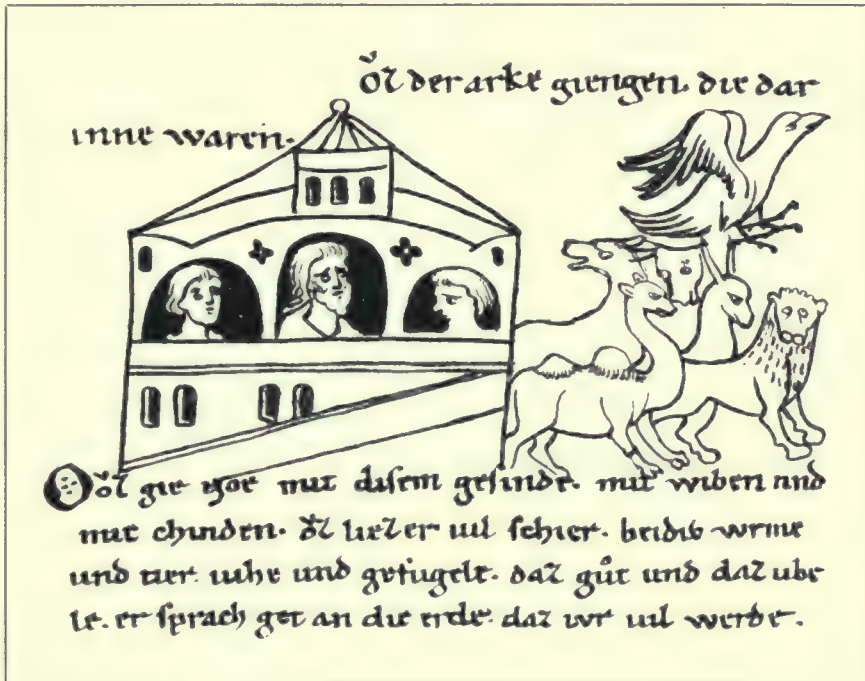 oͮz der arke giengen. die dar
inne waren.
Oͮz gie noe mit disem gesinde. mit wiben und
mit chinden. oͮz liez er uil schier. beidiv wrme
und tier. uihe und gefugele. daz gůt und daz ube
le. er sprach get an die erde. daz iwr uil werde.